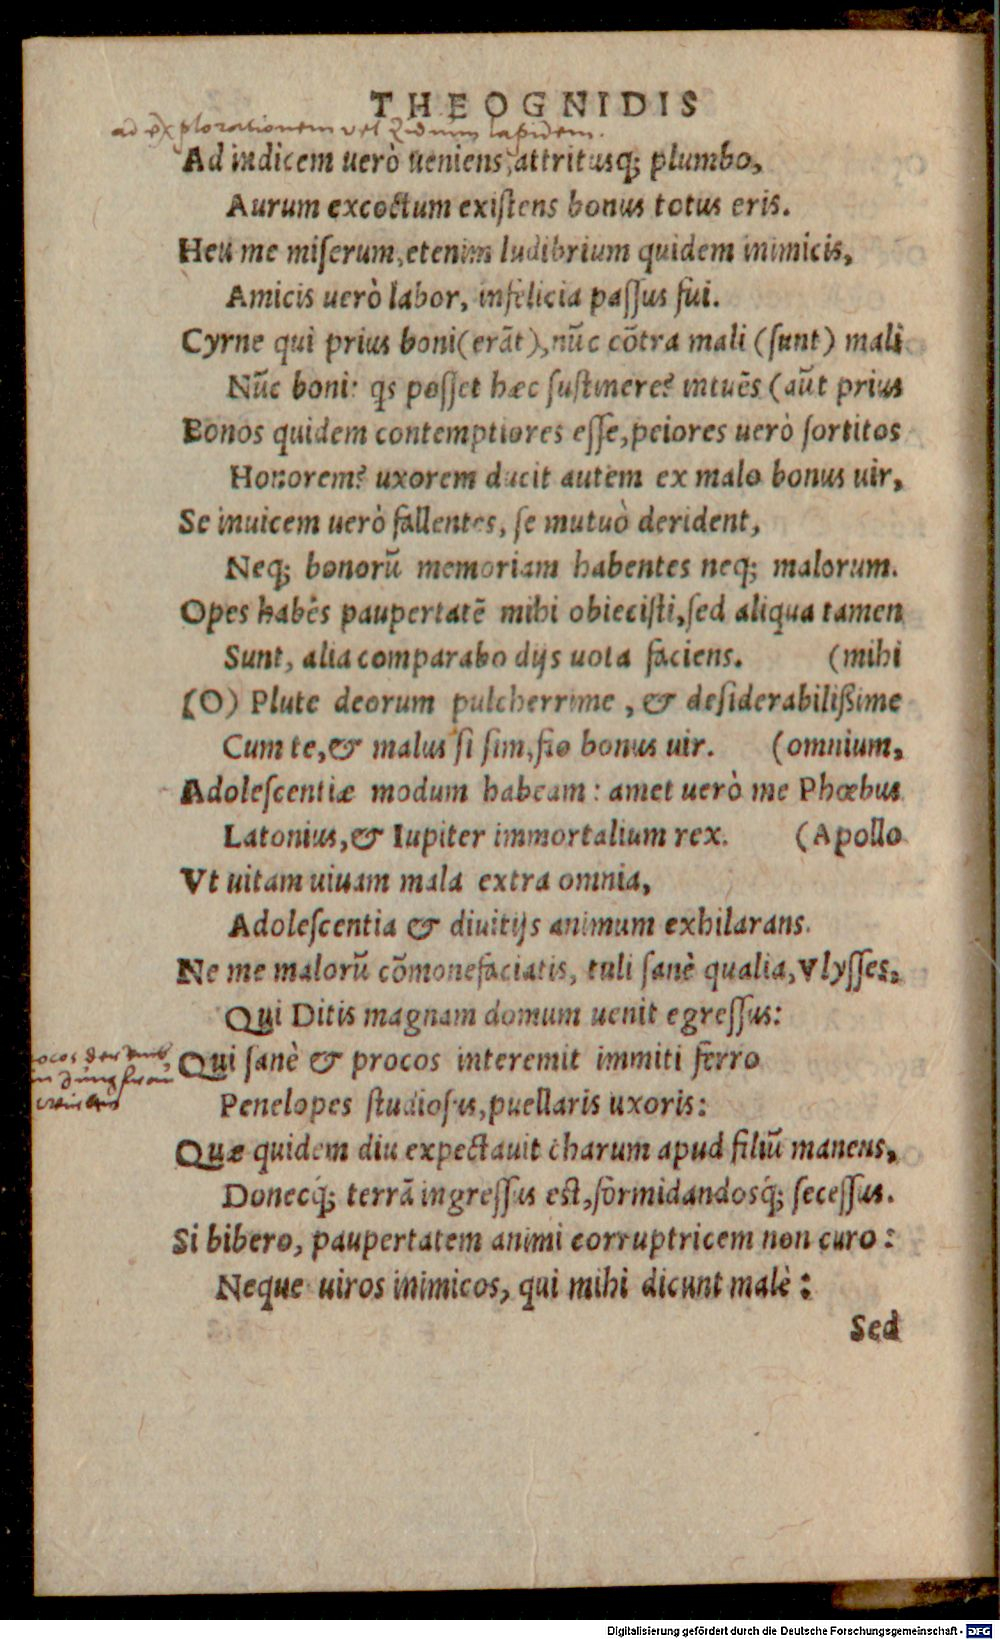 THEOGNIDIS
ad explorationem vel Lidium lapidem.
Ad indicem uerò ueniens, attritusq; plumbo,
Aurum excoctum exiſtens bonus totus eris.
Heu me miſerum, etenim ludibrium quidem inimicis,
Amicis uerò labor, infelicia paſſus fui.
Cyrne qui prius boni (erãt), nũc cõtra mali (ſunt) mali
Nũc boni: qs poſſet hæc ſuſtinere? intuẽs (aũt prius
Bonos quidem contemptiores eſſe, peiores uerò ſortitos
Honorem? uxorem ducit autem ex malo bonus uir,
Se inuicem uerò fallentes, ſe mutuò derident,
Neq; bonorũ memoriam habentes neq; malorum.
Opes habẽs paupertatẽ mihi obieciſti, ſed aliqua tamen
Sunt, alia comparabo dijs uota faciens. (mihi
(O) Plute deorum pulcherrime, & deſiderabilißime
Cum te, & malus ſi ſim, fio bonus uir. (omnium,
Adoleſcentiæ modum habeam: amet uerò me Phœbus
Latonius, & Iupiter immortalium rex. (Apollo
Vt uitam uiuam mala extra omnia,
Adoleſcentia & diuitijs animum exhilarans.
Ne me malorũ cõmonefaciatis, tuli ſanè qualia, Vlyſſes,
Qui Ditis magnam domum uenit egreſſus:
Qui ſanè & procos interemit immiti ferro
Penelopes ſtudioſus, puellaris uxoris:
Quæ quidem diu expectauit charum apud filiũ manens,
Donecq; terrã ingreſſus eſt, formidandosq; ſeceſſus.
Si bibero, paupertatem animi corruptricem non curo:
Neque uiros inimicos, qui mihi dicunt malè:
Sed
ocos der umb
Digitalisierung gefördert durch die Deutsche Forschungsgemeinschaft - DFG